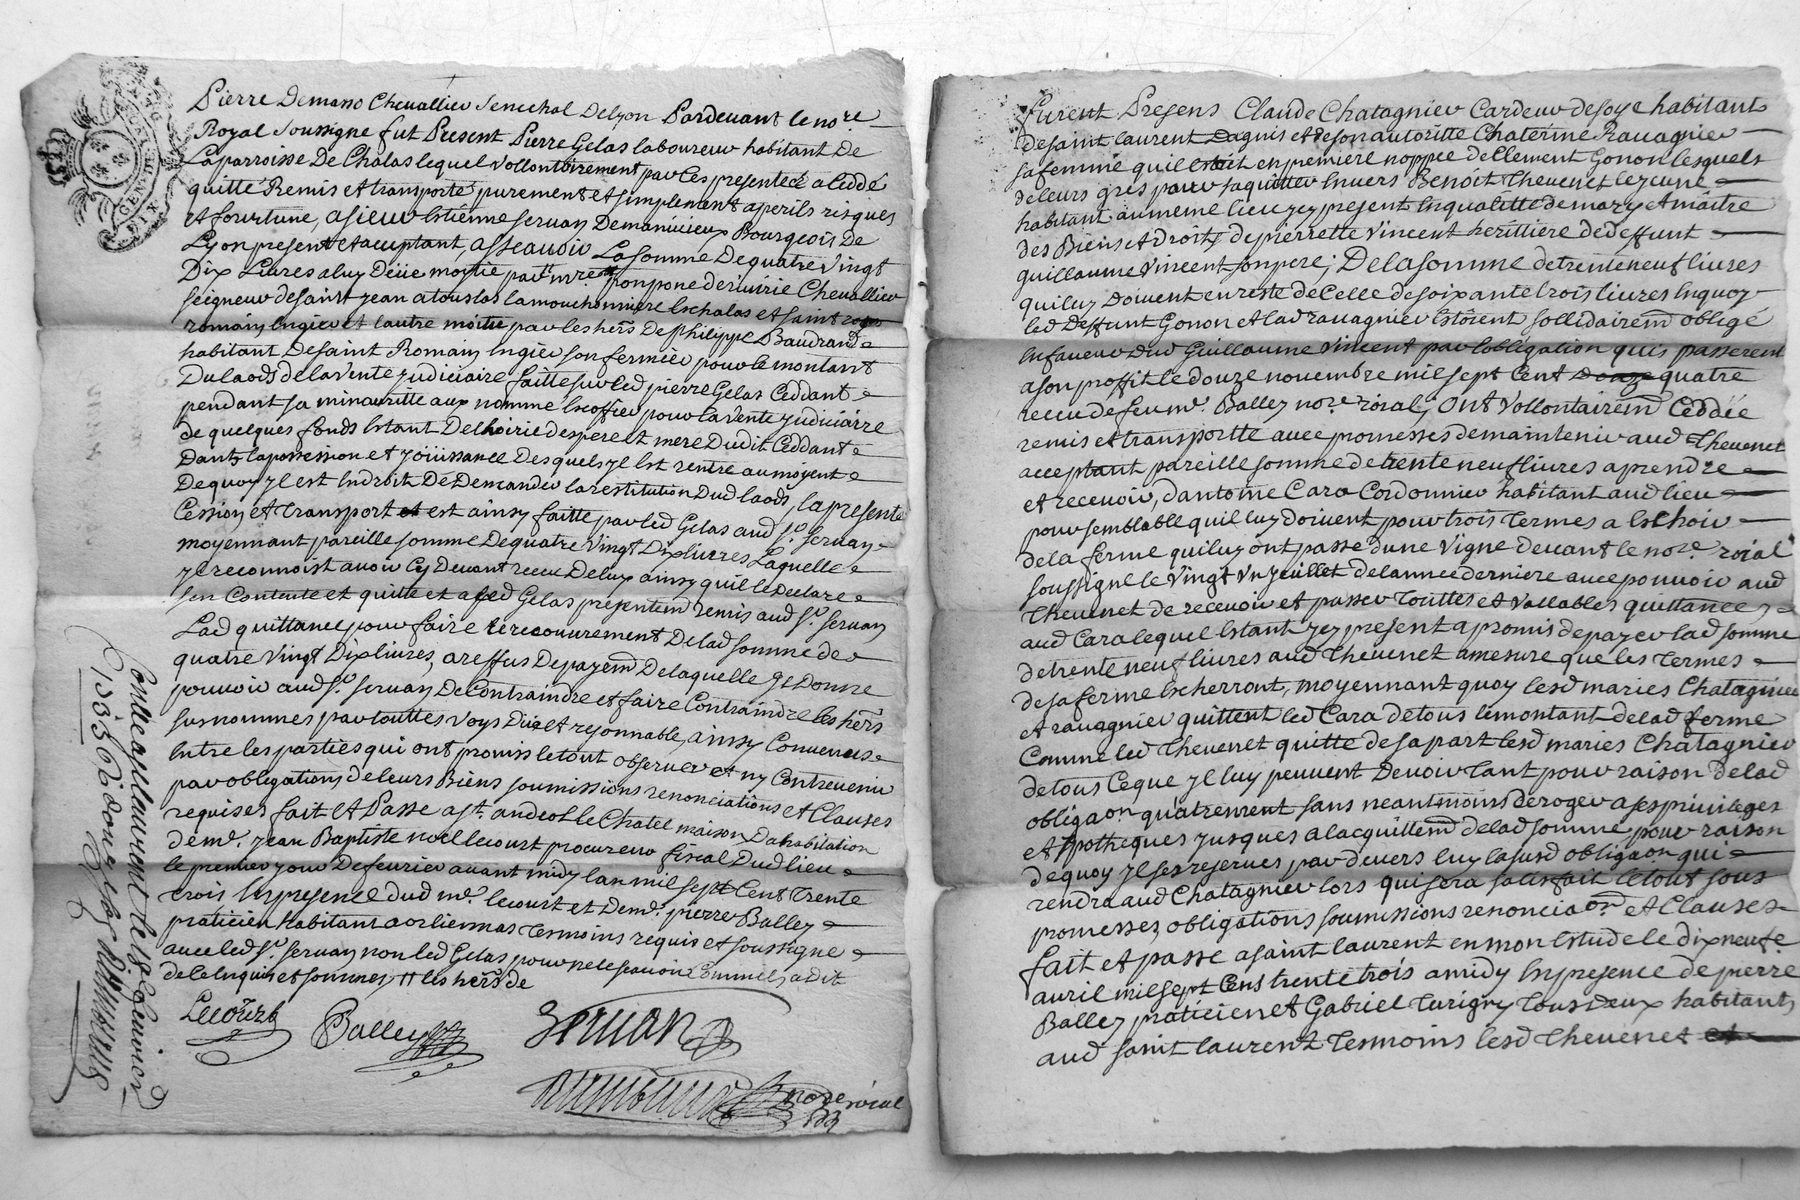 GEN. DE LYON
SIX DEN
Pierre Demasso Chevallier Senechal Delyon Pardevant le no.re
Royal Soussigné fut Present Pierre Gelas laboureur habitant De
Laparroisse De Chalas lequel vollontairement par Ces presentes a Ceddé
quitté Remis et transporté purement et simplement a perils risques
et fourtune, a sieur Estienne servan Bourgeois De
Lyon present et acceptant, asscavoir La somme De quatre vingt
Dix Livres a luy Deüe moytié par
seigneur de saint jean a touslas la mouchonniere Eschalas et saint
romain Engier et lautre moitié par les hers De philippe Baudrand
habitant De saint Romain Engier son fermier pour le montant
Du laods de la vente judiciaire faitte sur led pierre Gelas Ceddant
pendant sa minauritte aux nommé Escoffier pour la vente judiciaire
de quelques fonds Estant De lhoirie de ses pere et mere Dudit Ceddant
Dans la possession et joüissance Desquels yl Est rentré au moyent
De quoy yl est En droit De Demander la restitution Dud laods, la presente
Cession et transport est ainsy faitte par led Gelas aud s.r servan
moyennant pareille somme De quatre vingt Dix livres Laquelle
yl reconnoist avoir Cy Devant receu De luy ainsy quil le Declare
sen Contente et quitte et a led Gelas presentem remis aud s.r servan
Lad quittance pour faire le recouvrement De lad somme de
quatre vingt Dix livres, a reffus De payem De laquelle yl Donne
pouvoir aud s.r servan De Contraindre et faire Contraindre les hers
susnommes par touttes voys Düe et rezonnable, ainsy Convenus
Entre les parties qui ont promis le tout observer et ny Contrevenir
par obligations de leurs Biens soumissions renonciations et Clauses
requises fait et Passé a st. andeol le Chatel maison Dahabitation
de me. jean Baptiste noel lecourt procureur fiscal Dud lieu
le premier jour De feuvrier avant midy lan mil sept Cent trente
trois En presence dud me. lecourt et De me. pierre Balley
praticien habitant a orliennas tesmoins requis et soussigné
avec led s.r servan non led Gelas pour ne le scavoir Comme il a dit
de ce Enquis et sommé, # les hers de
Lecourt
Balley
Servan
no.re roial
Furent Presens Claude Chatagnier Cardeur de soye habitant
de saint laurent Dagnis et de son autoritte Chaterine Ravagnier
sa femme quil Estoit en premiere noppce de Clement Gonon lesquels
de leurs gres pour saquitter Envers Benoit Thevenet le jeune
habitant au meme lieu jcy present En qualitte de mary et maitre
des Biens et Droits de pierrette vincent herittiere de deffunt
guillaume vincent son pere; De la somme de trente neuf livres
quil luy Doivent en reste de Celle de soixante trois livres En quoy
led Deffunt Gonon et lad ravagnier Estoient sollidairem obligé
En faveur Dud Guillaume vincent par lobligation quis passerent
a son proffit le douze novembre mil sept Cent quatre
receu de feu me. Balley no.re roial; ont vollontairem Ceddée
remis et transportte avec promesses de maintenir aud Thevenet
acceptant pareille somme de trente neuf livres a prendre
et recevoir, dantoine Cara Cordonnier habitant aud lieu
pour semblable quil luy doivent pour trois termes a Eschoir
de la ferme quil luy ont passé dune vigne devant le no.re roial
soussigné le vingt un jeuillet de lannee derniere avec pouvoir aud
Thevenet de recevoir et passer touttes et vallables quittances,
aud Cara lequel Estant jcy present a promis de payer lad somme
de trente neuf livres aud Thevenet a mesure que les termes
de sa ferme Escherront, moyennant quoy lesd maries Chatagnier
et ravagnier quittent led Cara de tous le montant de lad ferme
Comme led Thevenet quitte de sa part lesd maries Chatagnier
de tous Ceque yl luy peuvent Devoir tant pour raison de lad
obligaon quatrement sans neantmoins deroger a ses privileges
et hipotheques jusques a lacquittem de lad somme pour raison
de quoy yl ses reservés par devers luy la susd obligaon qui
rendra aud Chatagnier lors qui sera satisfait le tout sous
promesses, obligations soumissions renonciaon et Clauses
fait et passé a saint laurent en mon Estude le dix neufe
avril mil sept Cens trente trois a midy En presence de pierre
Balley praticien et Gabriel turigny tous deux habitants
aud saint laurent tesmoins lesd thevenet